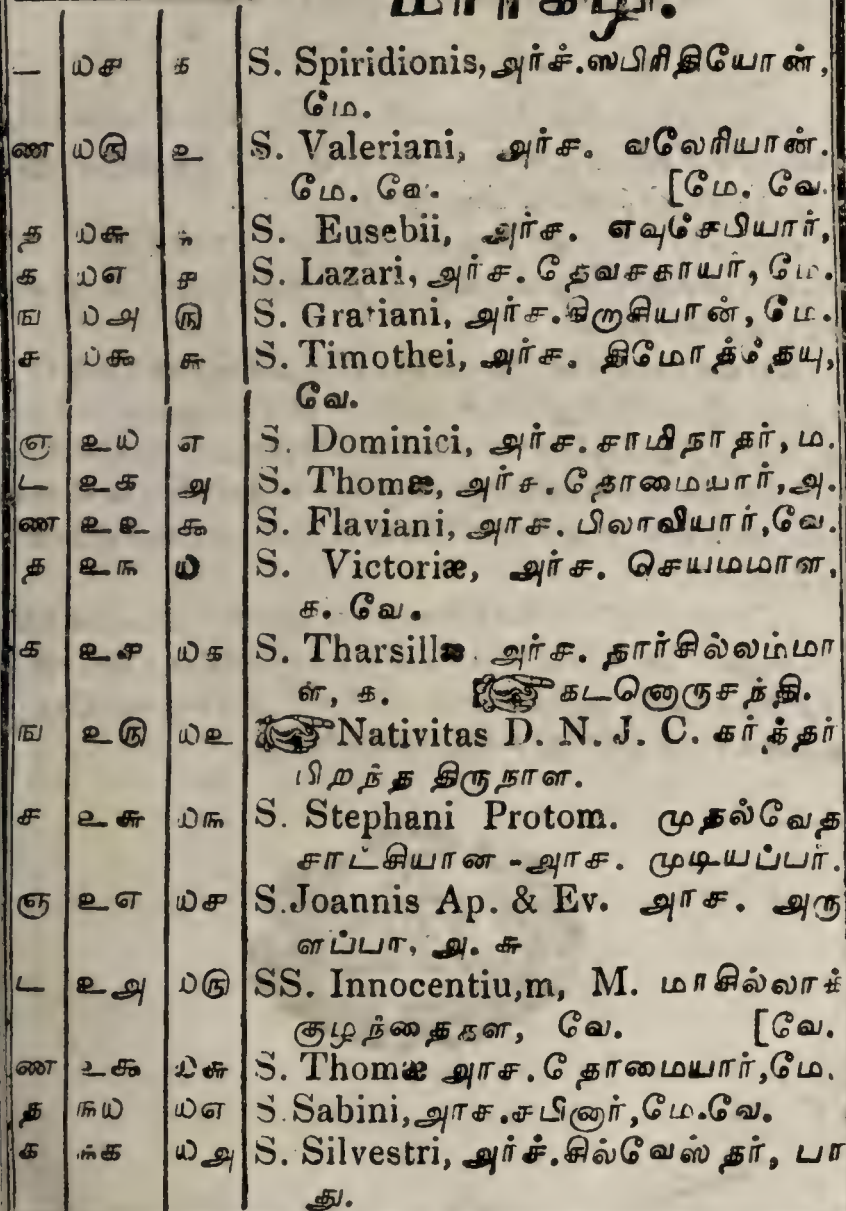 மார்கழி.
ட ௰௪ ௧ S. Spiridionis, அர்ச்.ஸபிரிதியோன்,
மே.
ண ௰௫ ௨ S. Valeriani, அர்ச. வலேரியான்.
மே. வே. [மே. வே.
த ௰௬ ௩ S. Eusebii, அர்ச. எவுசேபியார்,
க ௰௭ ௪ S. Lazari, அர்ச. தேவசகாயர், மே.
ங ௰௮ ௫ S. Gratiani, அர்ச.கிறுசியான், மே.
ச ௰௯ ௬ S. Timothei, அர்ச. திமோத்தேயு,
வே.
ஞ ௨௰ ௭ S. Dominici, அர்ச. சாமிநாதர், ம.
ட ௨௧ ௮ S. Thomæ, அர்ச. தோமையார்,அ.
ண ௨௨ ௯ S. Flaviani, அாச. பிலாவியார்,வே.
த ௨௩ ௰ S. Victoriæ, அர்ச. செயமமாள,
க. வே.
க ௨௪ ௰௧ S. Tharsillæ அர்ச. தார்சில்லம்மா
ள், க. ☞ கடனொருசந்தி.
ங ௨௫ ௰௨ ☞ Nativitas D. N. J. C. கர்த்தர்
பிறந்த திருநாள.
ச ௨௬ ௰௩ S. Stephani Protom. முதல்வேத
சாட்சியான - அாச. முடியப்பர்.
ஞ ௨௭ ௰௪ S. Joannis Ap. & Ev. அாச. அரு
ளப்பா, அ. சு
ட ௨௮ ௰௫ SS. Innocentiu,m, M. மாசில்லாக்
குழந்தைகள, வே. [வே.
ண ௨௯ ௰௬ S. Thomæ அாச. தோமையார்,மே.
த ௩௰ ௰௭ S. Sabini, அாச.சபினூர்,மே.வே.
க ௩௧ ௰௮ S. Silvestri, அர்ச்.சில்வேஸ்தர், பா
து.